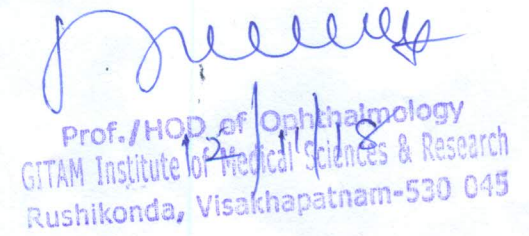 Prof./HOD of Ophthalmology
12/11/18
GITAM Institute of Medical Sciences & Research
Rushikonda, Visakhapatnam-530 045